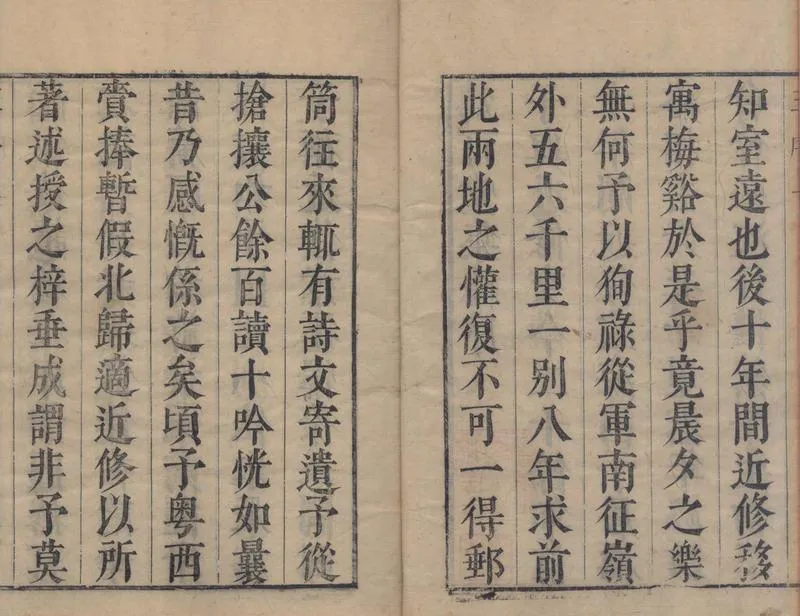 知室遠也後十年間近修移
寓梅谿於是乎竟晨夕之樂
無何予以狥祿從軍南征嶺
外五六千里一别八年求前
此兩地之懽復不可一得郵
筒往來輒有詩文寄遺予從
搶攘公餘百讀十吟恍如曩
昔乃感慨係之矣頃予粤西
賫捧暫假北歸適近修以所
著述授之梓垂成謂非予莫